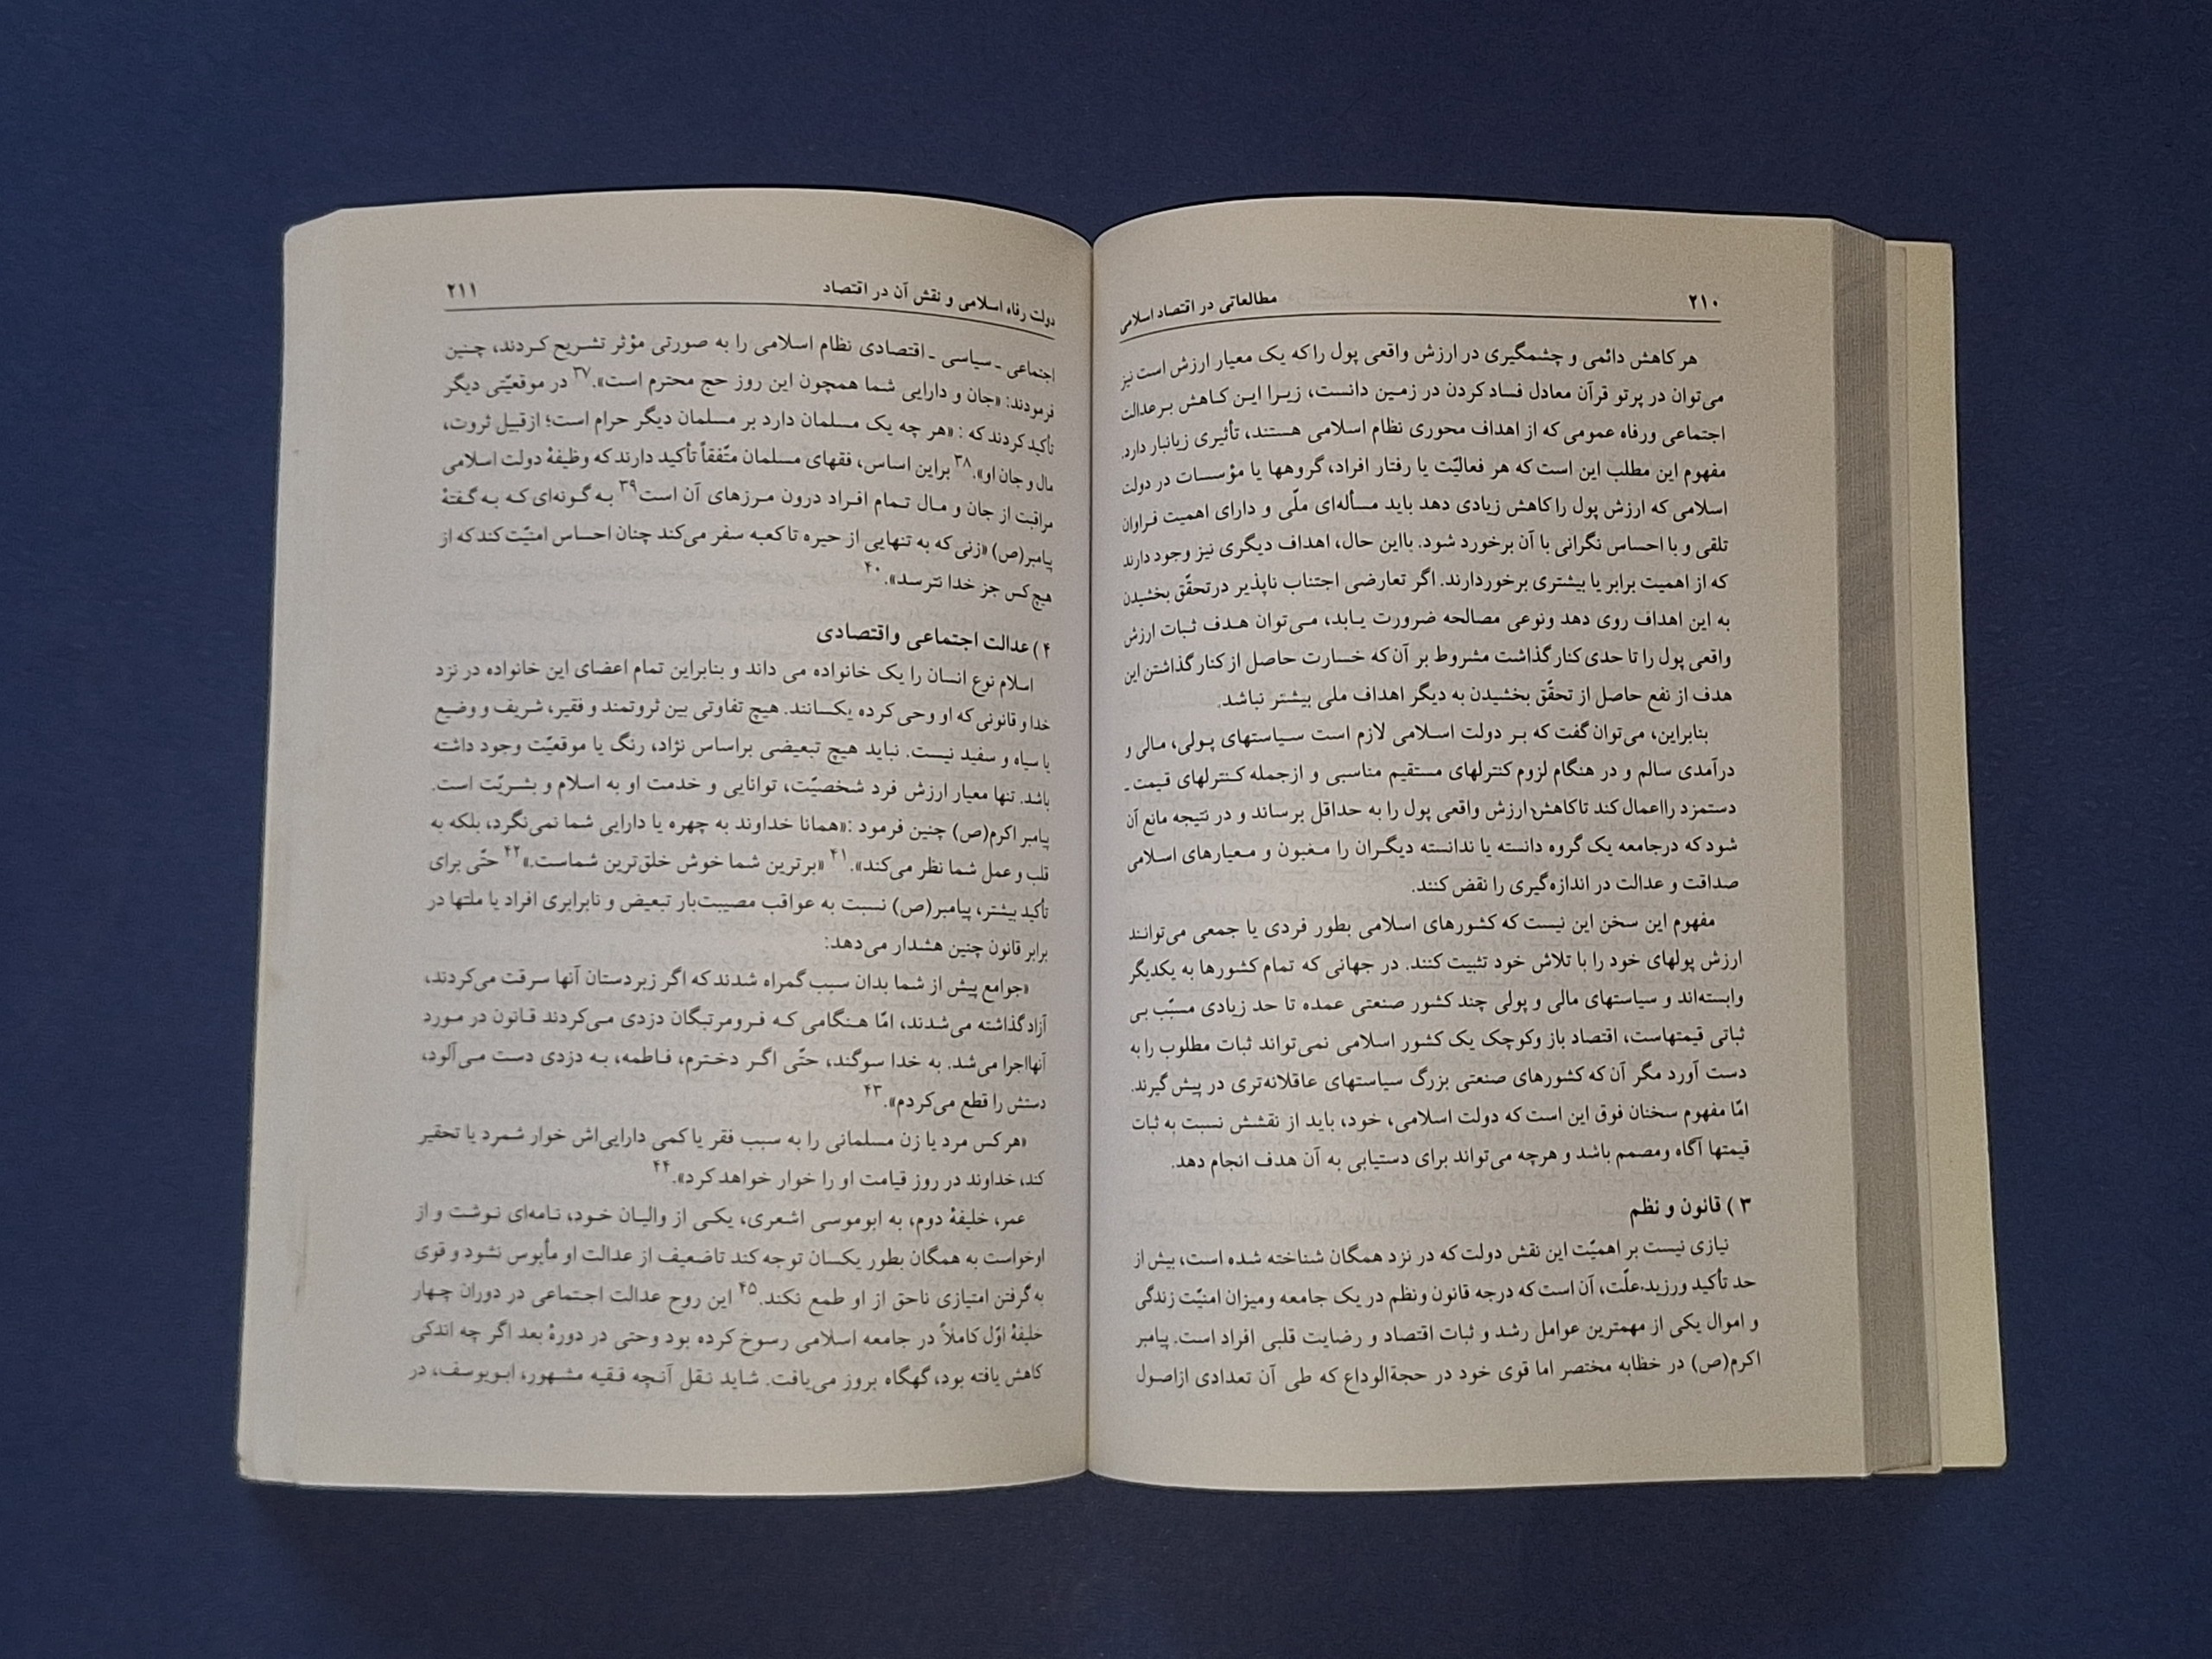 ۲۱۰
مطالعاتی در اقتصاد اسلامی
هر کاهش دائمی و چشمگیری در ارزش واقعی پول را که یک معیار ارزش است نیز
می‌توان در پرتو قرآن معادل فساد کردن در زمین دانست، زیرا این کاهش بر عدالت
اجتماعی ورفاه عمومی که از اهداف محوری نظام اسلامی هستند، تأثیری زیانبار دارد.
مفهوم این مطلب این است که هر فعالیّت یا رفتار افراد، گروهها یا مؤسسات در دولت
اسلامی که ارزش پول را کاهش زیادی دهد باید مسأله‌ای ملّی و دارای اهمیت فراوان
تلقی و با احساس نگرانی با آن برخورد شود. بااین حال، اهداف دیگری نیز وجود دارند
که از اهمیت برابر یا بیشتری برخوردارند. اگر تعارضی اجتناب ناپذیر درتحقّق بخشیدن
به این اهداف روی دهد ونوعی مصالحه ضرورت یابد، می‌توان هدف ثبات ارزش
واقعی پول را تا حدی کنار گذاشت مشروط بر آن که خسارت حاصل از کنار گذاشتن این
هدف از نفع حاصل از تحقّق بخشیدن به دیگر اهداف ملی بیشتر نباشد.
بنابراین، می‌توان گفت که بر دولت اسلامی لازم است سیاستهای پولی، مالی و
درآمدی سالم و در هنگام لزوم کنترلهای مستقیم مناسبی و ازجمله کنترلهای قیمت ـ
دستمزد رااعمال کند تاکاهش ارزش واقعی پول را به حداقل برساند و در نتیجه مانع آن
شود که درجامعه یک گروه دانسته یا ندانسته دیگران را مغبون و معیارهای اسلامی
صداقت و عدالت در اندازه‌گیری را نقض کنند.
مفهوم این سخن این نیست که کشورهای اسلامی بطور فردی یا جمعی می‌توانند
ارزش پولهای خود را با تلاش خود تثبیت کنند. در جهانی که تمام کشورها به یکدیگر
وابسته‌اند و سیاستهای مالی و پولی چند کشور صنعتی عمده تا حد زیادی مسبّب بی
ثباتی قیمتهاست، اقتصاد باز وکوچک یک کشور اسلامی نمی‌تواند ثبات مطلوب را به
دست آورد مگر آن که کشورهای صنعتی بزرگ سیاستهای عاقلانه‌تری در پیش گیرند.
امّا مفهوم سخنان فوق این است که دولت اسلامی، خود، باید از نقشش نسبت به ثبات
قیمتها آگاه ومصمم باشد و هرچه می‌تواند برای دستیابی به آن هدف انجام دهد.
۳ ) قانون و نظم
نیازی نیست بر اهمیّت این نقش دولت که در نزد همگان شناخته شده است، بیش از
حد تأکید ورزید.علّت، آن است که درجه قانون ونظم در یک جامعه ومیزان امنیّت زندگی
و اموال یکی از مهمترین عوامل رشد و ثبات اقتصاد و رضایت قلبی افراد است. پیامبر
اکرم(ص) در خطابه مختصر اما قوی خود در حجةالوداع که طی آن تعدادی ازاصول
دولت رفاه اسلامی و نقش آن در اقتصاد
۲۱۱
اجتماعی ـ سیاسی ـ اقتصادی نظام اسلامی را به صورتی مؤثر تشریح کردند، چنین
فرمودند: «جان و دارایی شما همچون این روز حج محترم است».۳۷ در موقعیّتی دیگر
تأکید کردند که : «هر چه یک مسلمان دارد بر مسلمان دیگر حرام است؛ ازقبیل ثروت،
مال و جان او».۳۸ براین اساس، فقهای مسلمان متّفقاً تأکید دارند که وظیفهٔ دولت اسلامی
مراقبت از جان و مال تمام افراد درون مرزهای آن است۳۹ به گونه‌ای که به گفتهٔ
پیامبر(ص) «زنی که به تنهایی از حیره تا کعبه سفر می‌کند چنان احساس امنیّت کند که از
هیچ کس جز خدا نترسد».۴۰
۴ ) عدالت اجتماعی واقتصادی
اسلام نوع انسان را یک خانواده می داند و بنابراین تمام اعضای این خانواده در نزد
خدا و قانونی که او وحی کرده یکسانند. هیچ تفاوتی بین ثروتمند و فقیر، شریف و وضیع
یا سیاه و سفید نیست. نباید هیچ تبعیضی براساس نژاد، رنگ یا موقعیّت وجود داشته
باشد. تنها معیار ارزش فرد شخصیّت، توانایی و خدمت او به اسلام و بشریّت است.
پیامبر اکرم(ص) چنین فرمود :«همانا خداوند به چهره یا دارایی شما نمی‌نگرد، بلکه به
قلب و عمل شما نظر می‌کند».۴۱ «برترین شما خوش خلق‌ترین شماست.»۴۲ حتّی برای
تأکید بیشتر، پیامبر(ص) نسبت به عواقب مصیبت‌بار تبعیض و نابرابری افراد یا ملتها در
برابر قانون چنین هشدار می‌دهد:
«جوامع پیش از شما بدان سبب گمراه شدند که اگر زبردستان آنها سرقت می‌کردند،
آزاد گذاشته می‌شدند، امّا هنگامی که فرومرتبگان دزدی می‌کردند قانون در مورد
آنهااجرا می‌شد. به خدا سوگند، حتّی اگر دخترم، فاطمه، به دزدی دست می‌آلود،
دستش را قطع می‌کردم».۴۳
«هرکس مرد یا زن مسلمانی را به سبب فقر یا کمی دارایی‌اش خوار شمرد یا تحقیر
کند، خداوند در روز قیامت او را خوار خواهد کرد».۴۴
عمر، خلیفهٔ دوم، به ابوموسی اشعری، یکی از والیان خود، نامه‌ای نوشت و از
اوخواست به همگان بطور یکسان توجه کند تاضعیف از عدالت او مأیوس نشود و قوی
به گرفتن امتیازی ناحق از او طمع نکند.۴۵ این روح عدالت اجتماعی در دوران چهار
خلیفهٔ اوّل کاملاً در جامعه اسلامی رسوخ کرده بود وحتی در دورهٔ بعد اگر چه اندکی
کاهش یافته بود، گهگاه بروز می‌یافت. شاید نقل آنچه فقیه مشهور، ابویوسف، در